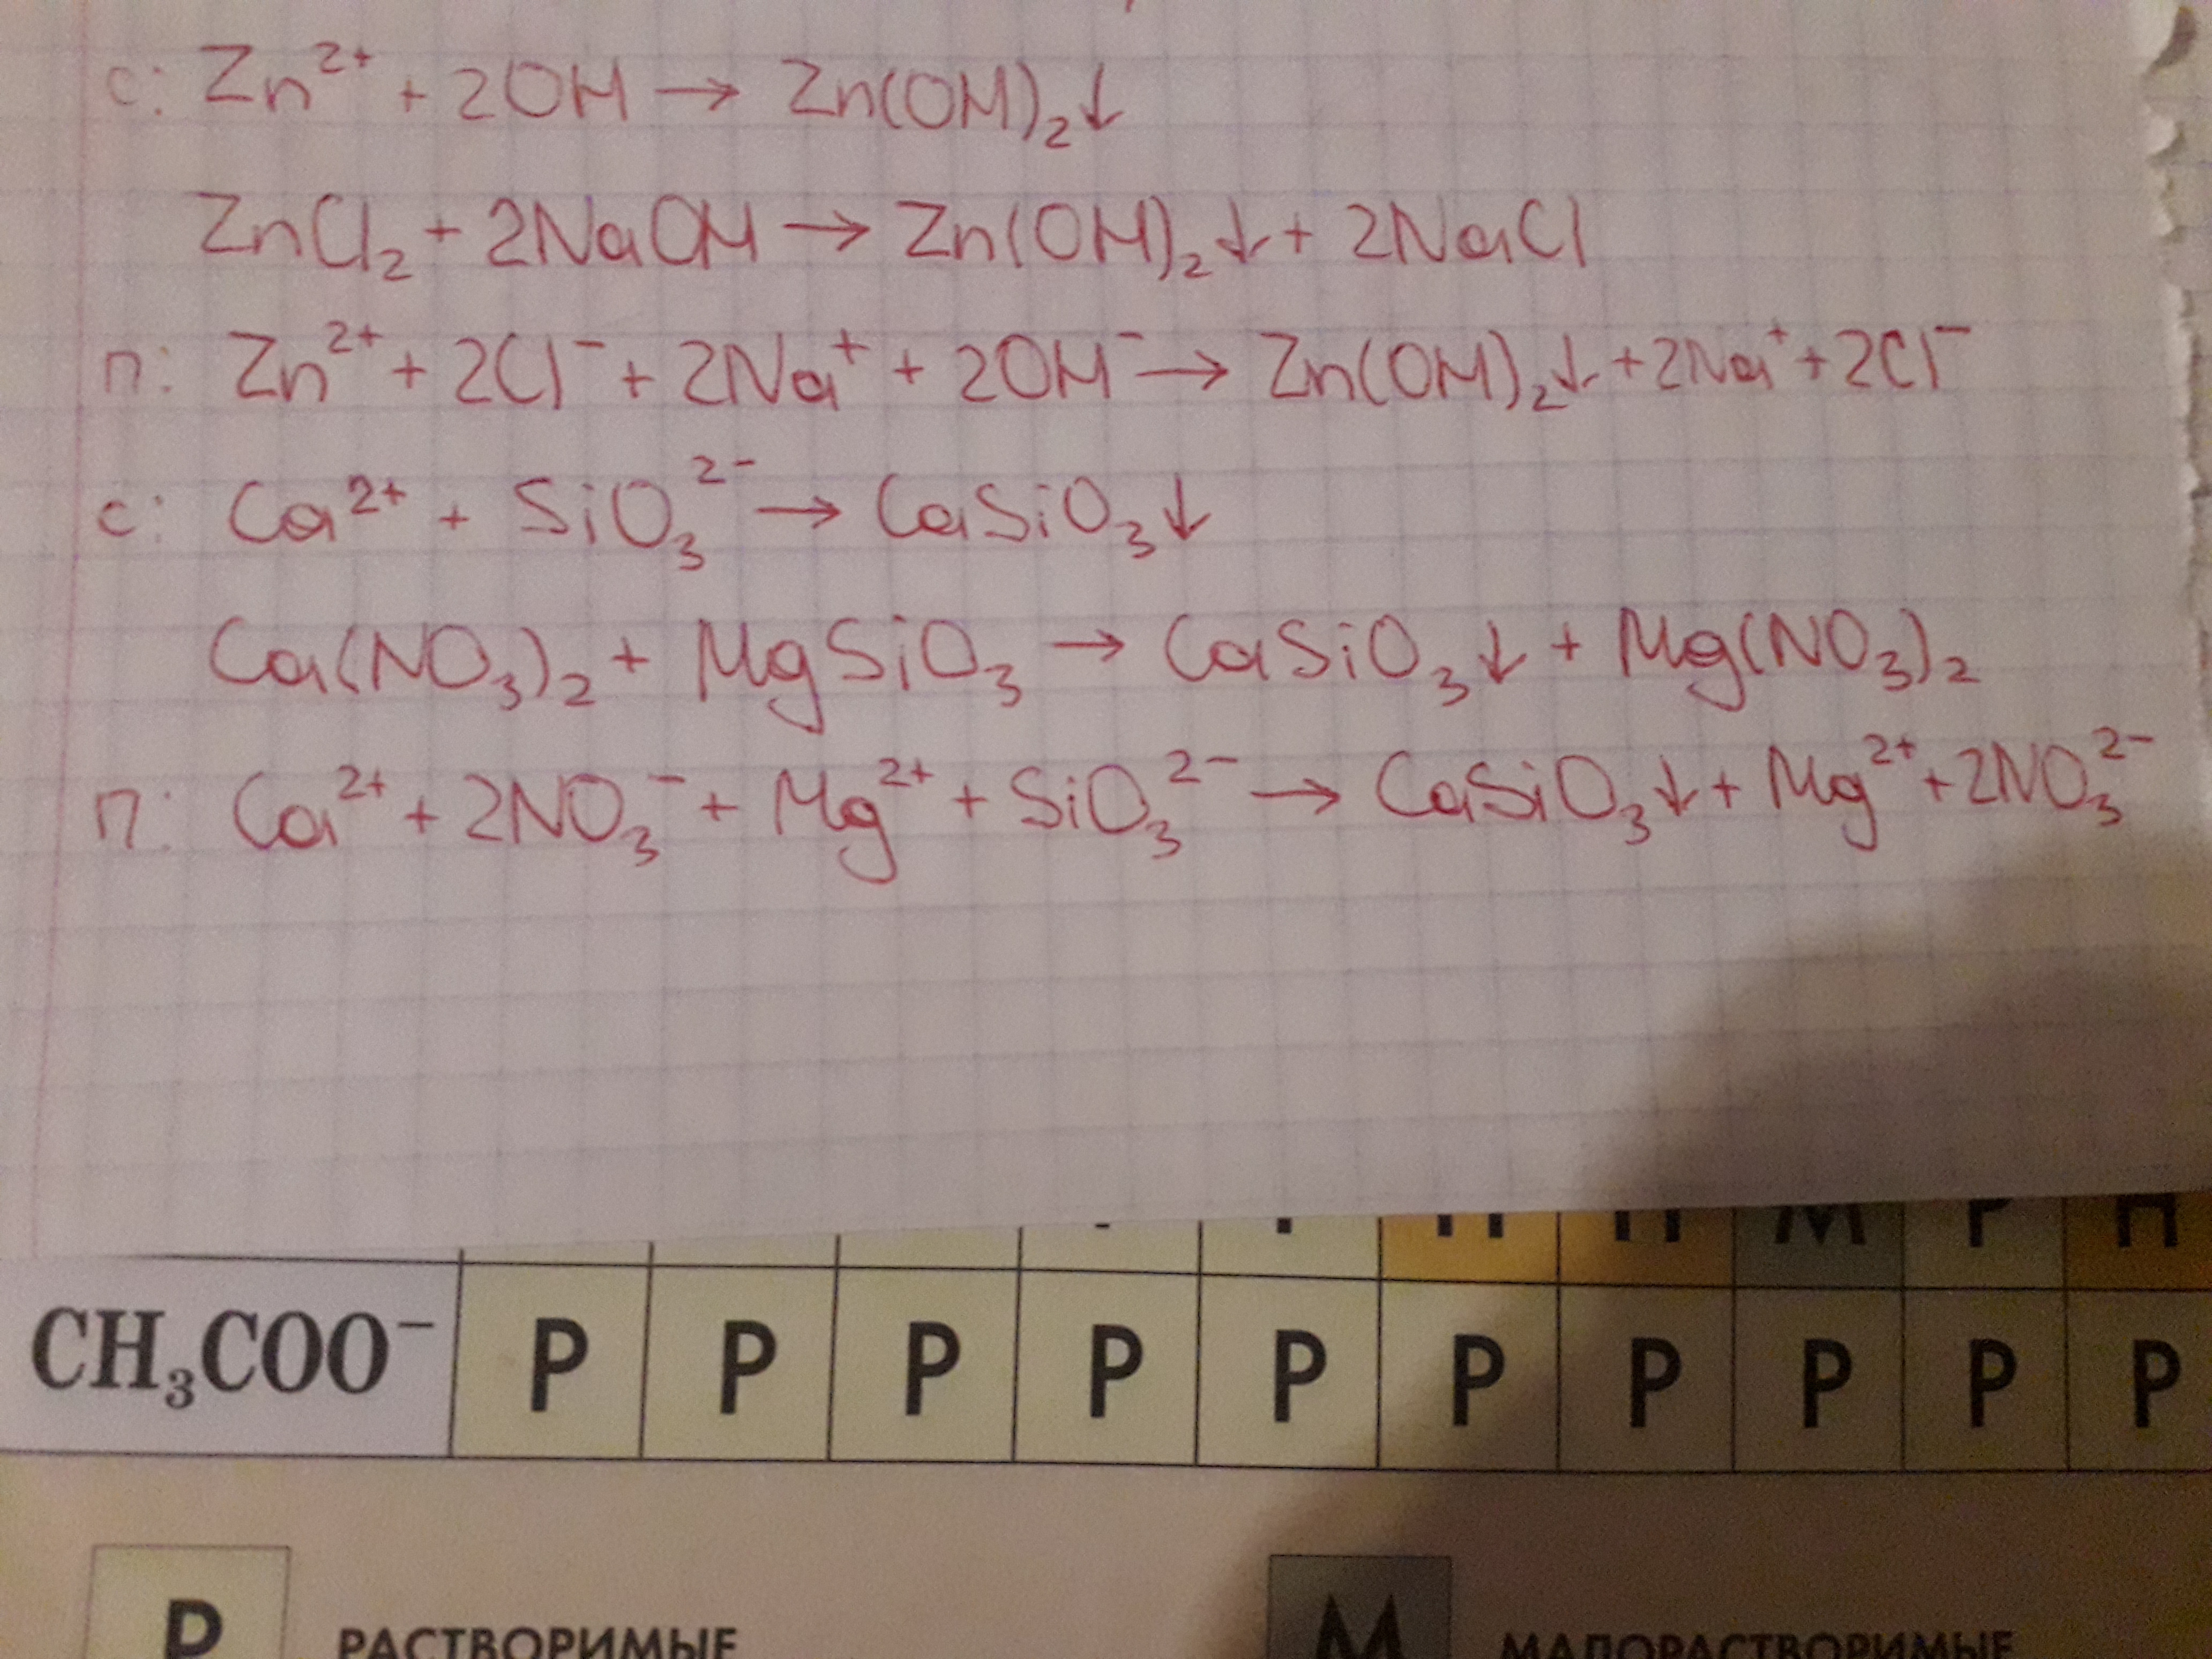 с: Zn²⁺ + 2OH → Zn(OH)₂↓
ZnCl₂ + 2NaOH → Zn(OH)₂↓ + 2NaCl
п: Zn²⁺ + 2Cl⁻ + 2Na⁺ + 2OH⁻ → Zn(OH)₂↓ + 2Na⁺ + 2Cl⁻
с: Ca²⁺ + SiO₃²⁻ → CaSiO₃↓
Ca(NO₃)₂ + MgSiO₃ → CaSiO₃↓ + Mg(NO₃)₂
п: Ca²⁺ + 2NO₃⁻ + Mg²⁺ + SiO₃²⁻ → CaSiO₃↓ + Mg²⁺ + 2NO₃²⁻
М Р Н
CH₃COO⁻ Р Р Р Р Р Р Р Р Р Р
Р РАСТВОРИМЫЕ М МАЛОРАСТВОРИМЫЕ